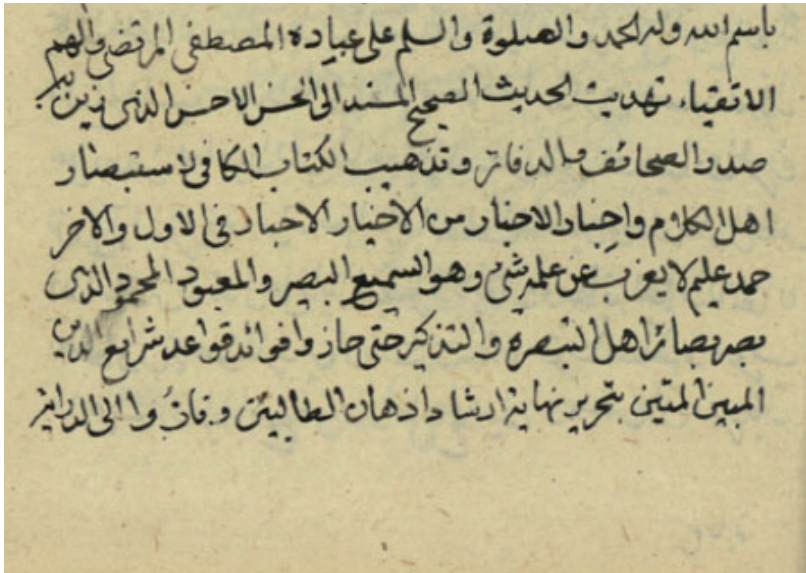 باسم الله وله الحمد والصلوة والسلم على عباده المصطفى المرتضى والهم
الاتقياء تهديت الحديث الصحيح المسند الى الحسن الاحسن الذى زين به
صدر الصحائف والدفاتر وتذهيب الكتاب الكافى لاستبصار
اهل الكلام واخبار الاخبار من الاخيار الاحبار فى الاول والاخر
حمد عليم لا يعزب عن علمه شئ وهو السميع البصير والمعبود المحمود الذى
بصر بصائر اهل التبصرة والتذكير حتى حازوا فوائد قواعد شرايع الدين
المبين المتين بتحرير نهاية ارشاد اذهان الطالبين وفازوا الى الدراية